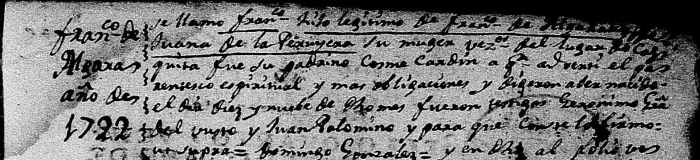 franco de
Algaras
año de
1722
se llamo franco hijo legitimo de franco de
Juana de la Peruyera su muger vezos del lugar de
quita fue su padrino Cosme Cardin a qn adverti el pa
rentesco espiritual y mas obligaciones y digeron aber nacido
el dia diez y nuebe de dho mes fueron testigos Geronimo
del busto y Juan Palomino y para que conste lo firmo
ut supra = Domingo Gonzalez = y en dho